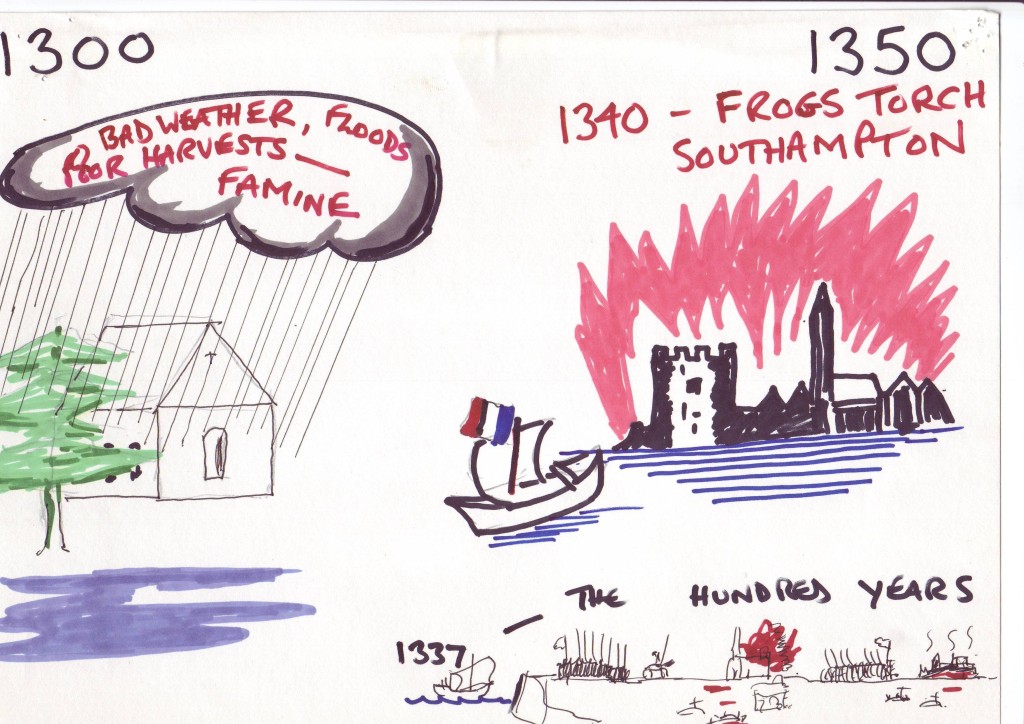 1300
BAD WEATHER, FLOODS
& POOR HARVESTS —
FAMINE
1350
1340 - FROGS TORCH
SOUTHAMPTON
THE HUNDRED YEARS
1337